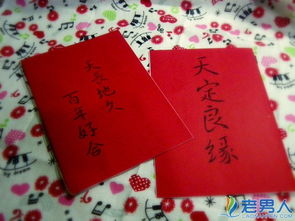 天长地久
百年好合
天定良缘
老男人